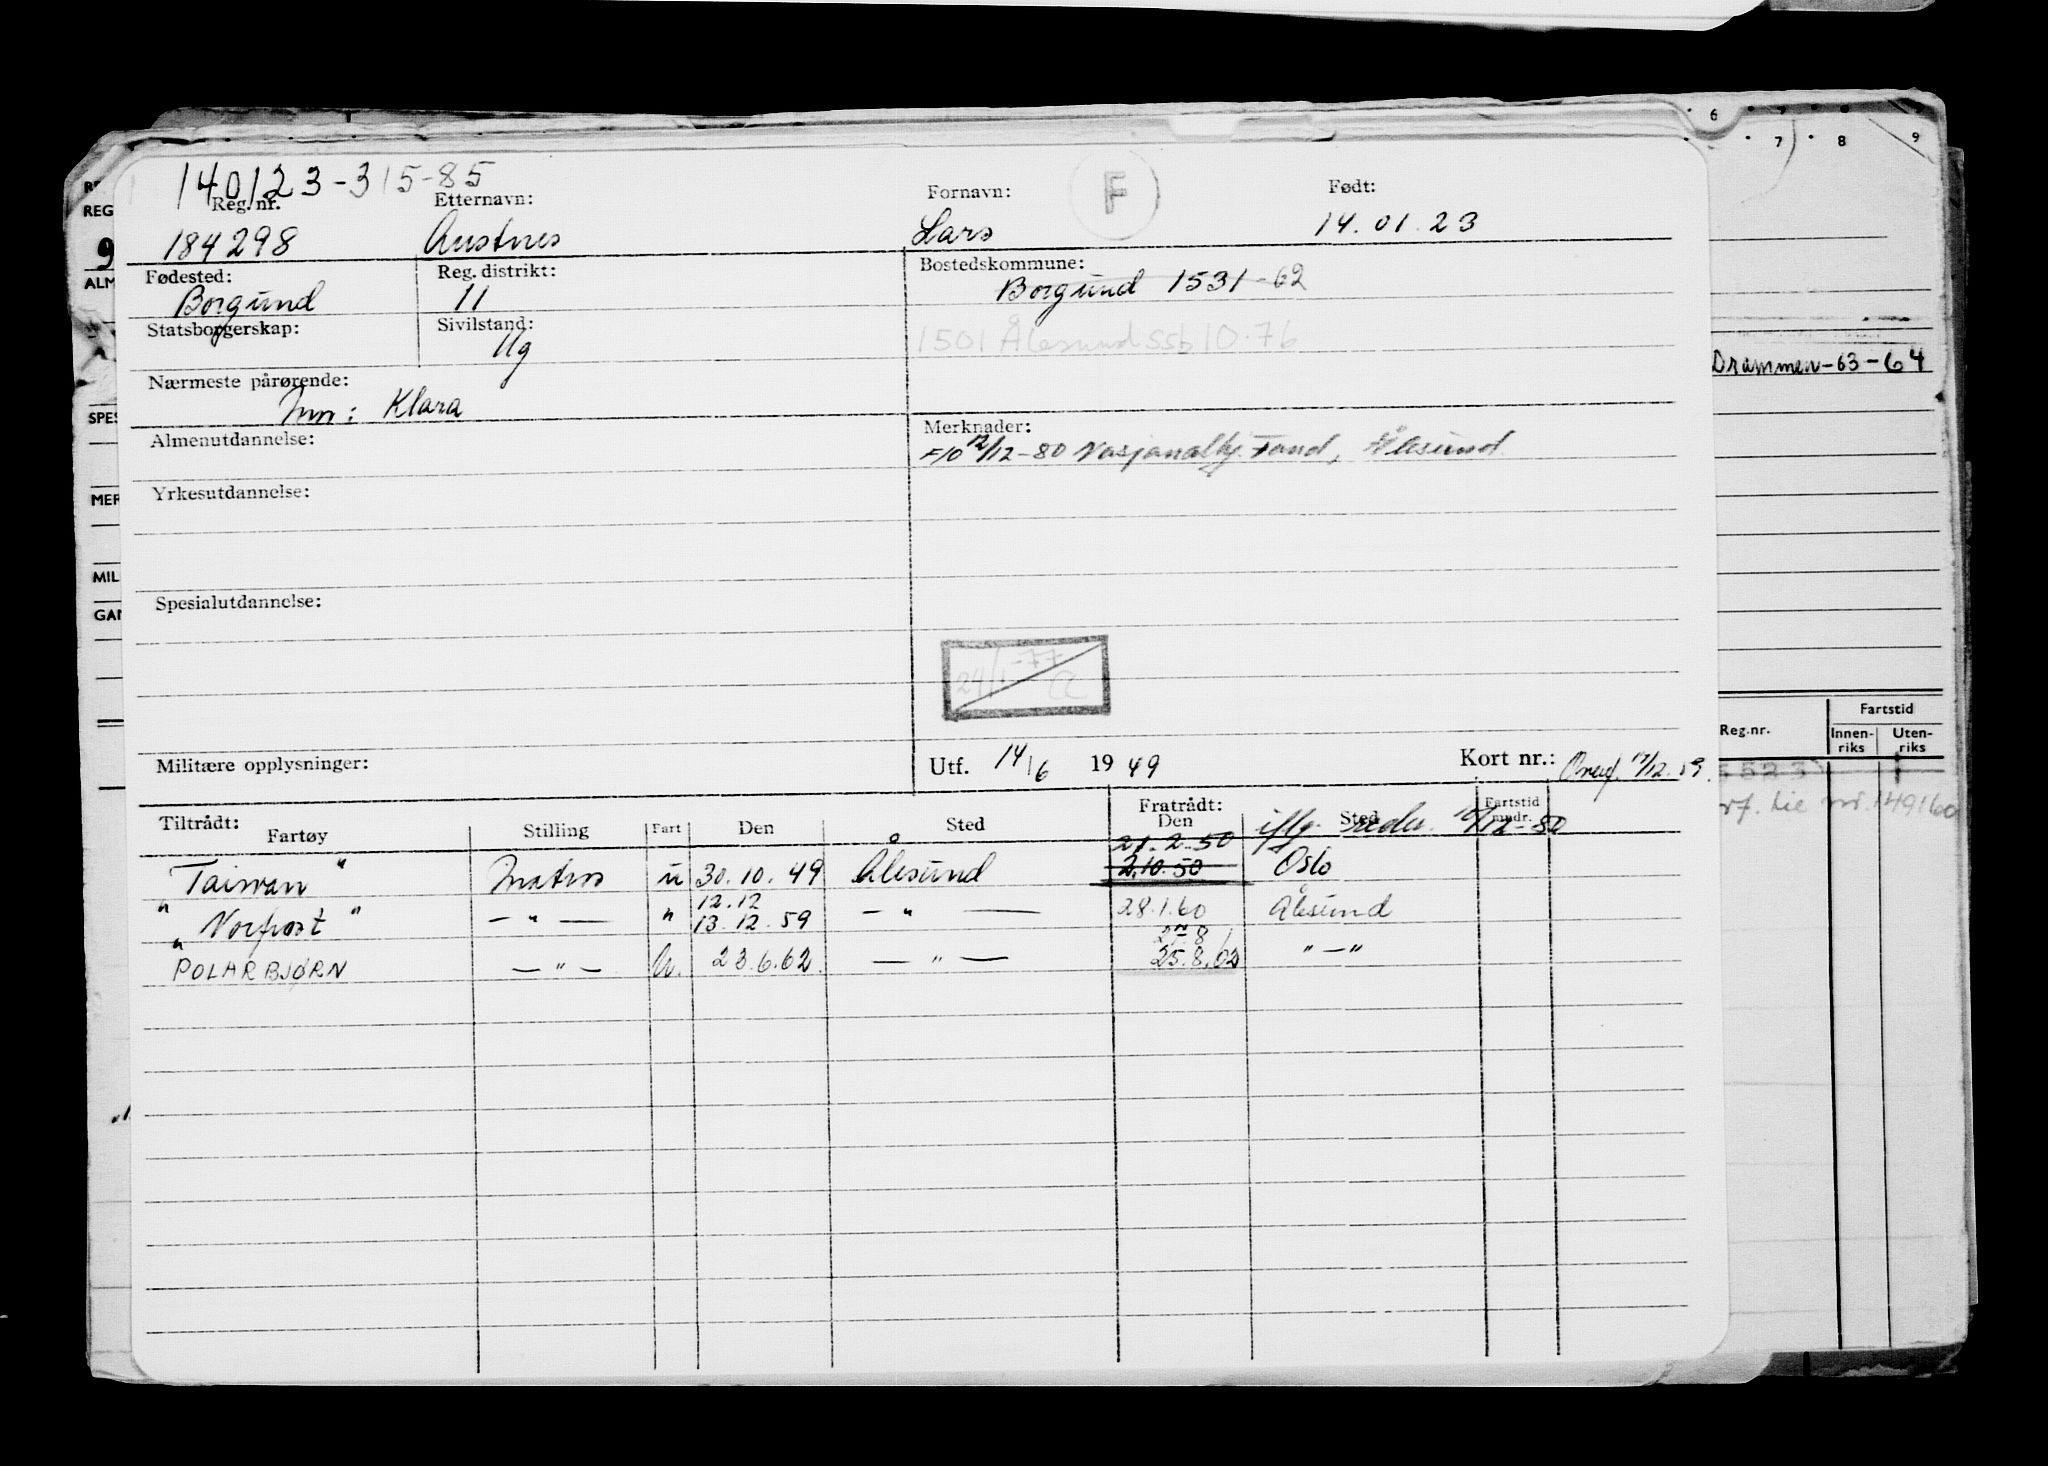 140123-315-85
Reg. nr. Etternavn: Fornavn: F Født:
184298 Austnes Lars 14.01.23
Fødested: Reg. distrikt: Bostedskommune:
Borgund 11 Borgund 1531-62
Statsborgerskap: Sivilstand:
Ug 1501 Ålesund SSb 10.76
Nærmeste pårørende:
Mor: Klara
Almenutdannelse: Merknader:
F10 12/12-80 Nasjonalhj. Fond, Ålesund.
Yrkesutdannelse:
Spesialutdannelse:
24/1-77
Militære opplysninger: Utf. 14/6 1949 Kort nr.:
Tiltrådt: Fratrådt:
Fartøy Stilling Fart Den Sted Den Sted Fartstid mndr.
21.2.50 iflg. reder. 12/12-80
"Taiwan" Matros u 30.10.49 Ålesund 2.10.50 Oslo
12.12
"Norfrost" — " — " 13.12.59 — " — 28.1.60 Ålesund
27.8
"POLARBJØRN — " — 23.6.62. — " — 25.8.62 " — "
6 7 8
7 8 9
REG
9
ALM
SPES
MER
MIL
GAN
Drammen-63-64
Reg.nr. Fartstid
Innen-riks Uten-riks